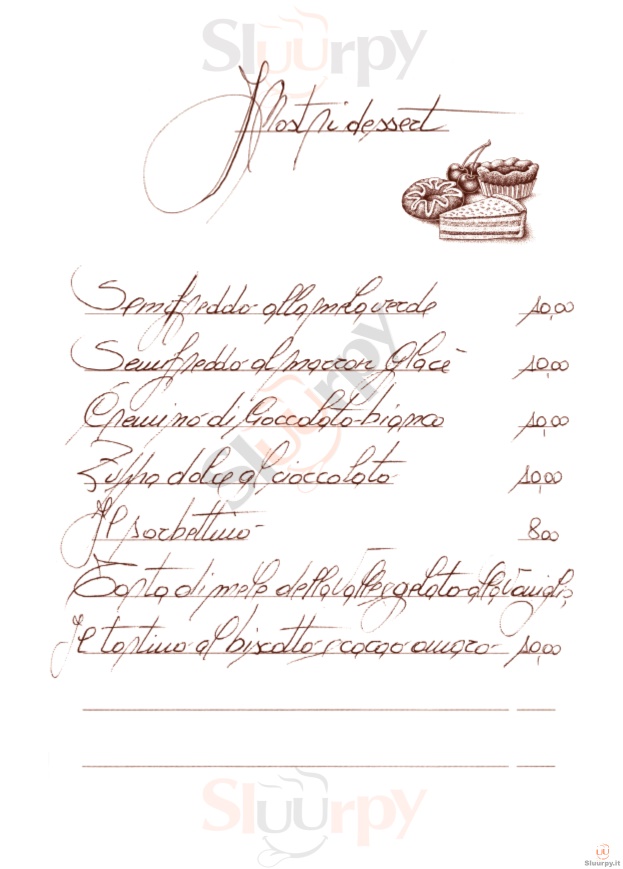 Sluurpy
I Nostri dessert
Semifreddo alla mela verde 10,00
Semifreddo al marron glacè 10,00
Cremino di Cioccolato bianco 10,00
Zuppa dolce al cioccolato 10,00
Il sorbettino 8,00
Torta di mele della Valle, gelato alla vaniglia
Il tortino al biscotto e cacao amaro 10,00
Sluurpy
Sluurpy
Sluurpy.it